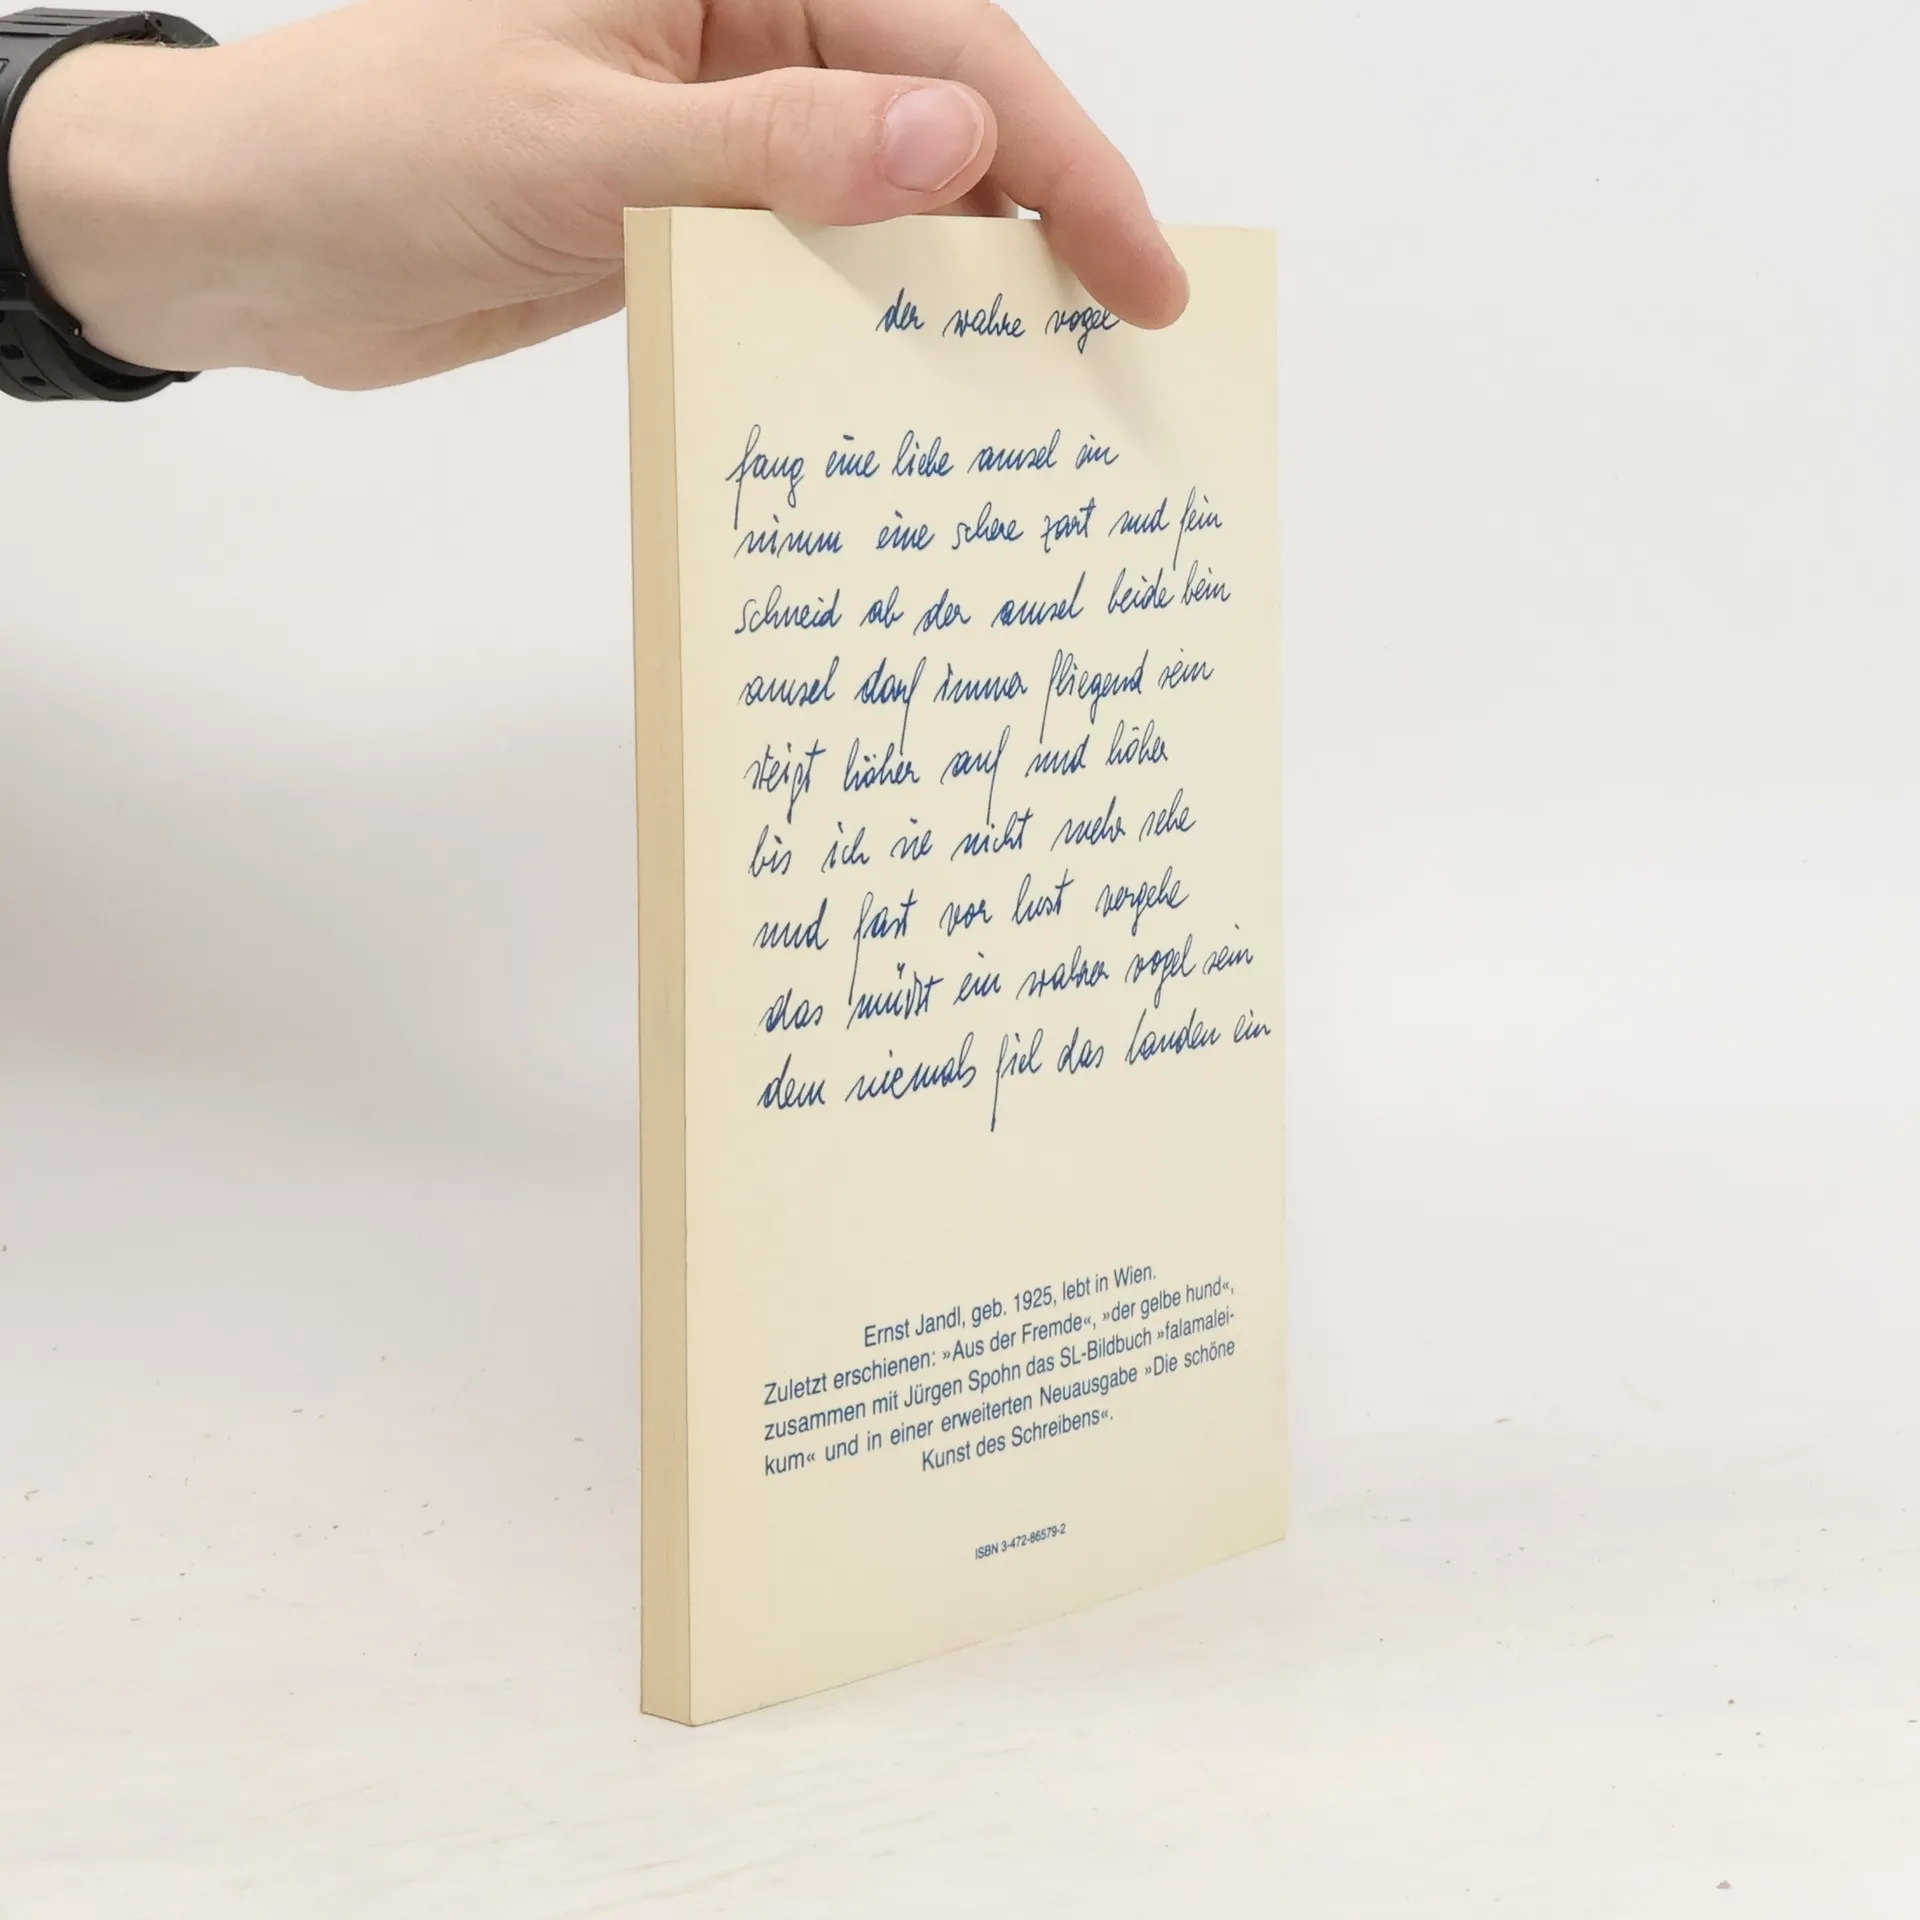 der wahre vogel
fang eine liebe amsel ein
nimm eine schere zart und fein
schneid ab der amsel beide bein
amsel darf immer fliegend sein
steigt höher auf und höher
bis ich sie nicht mehr sehe
und fast vor lust vergehe
das müßt ein wahrer vogel sein
dem niemals fiel das landen ein
Ernst Jandl, geb. 1925, lebt in Wien.
Zuletzt erschienen: »Aus der Fremde«, »der gelbe hund«,
zusammen mit Jürgen Spohn das SL-Bildbuch »falamalei-
kum« und in einer erweiterten Neuausgabe »Die schöne
Kunst des Schreibens«.
ISBN 3-472-86579-2